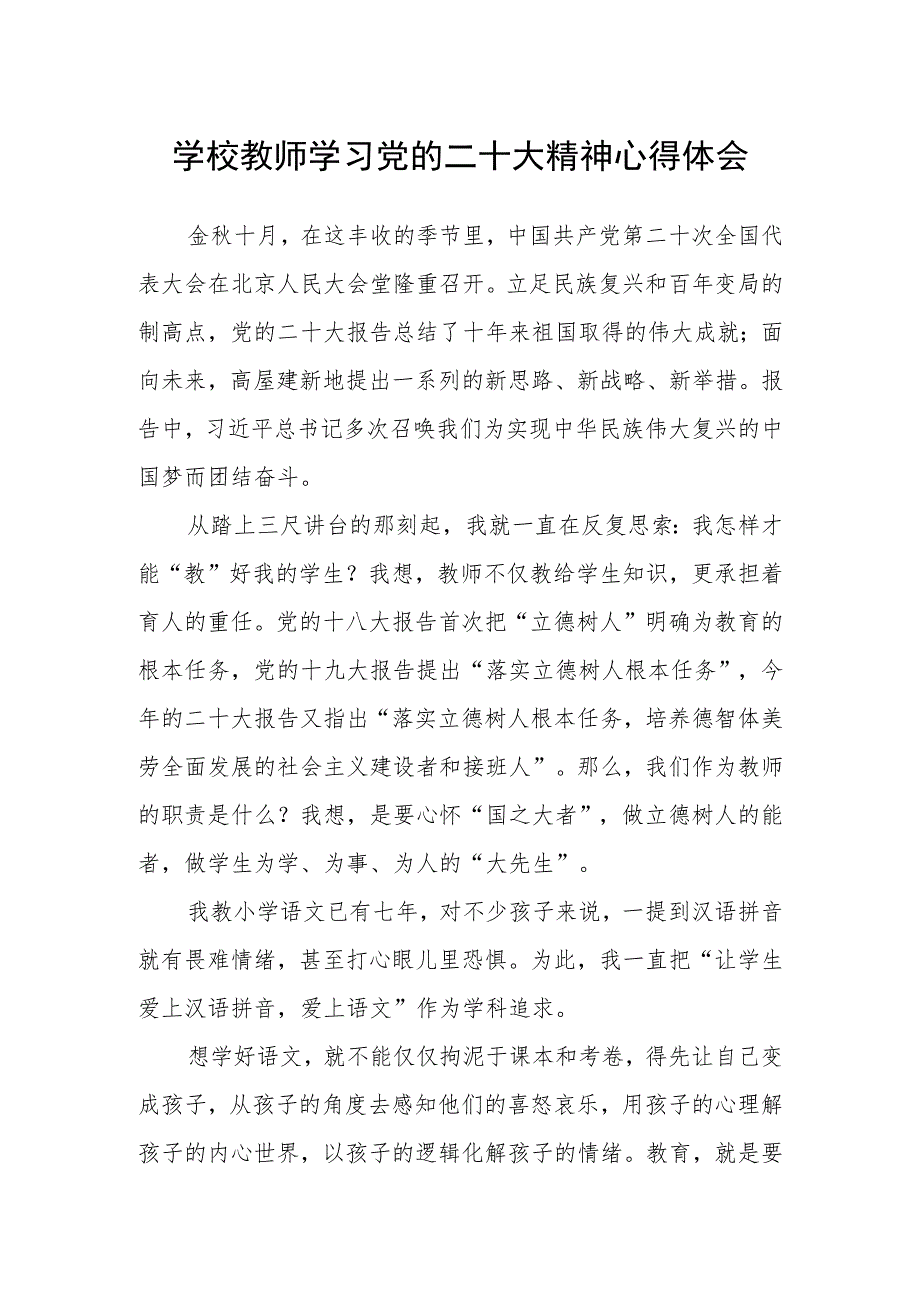 学校教师学习党的二十大精神心得体会
金秋十月，在这丰收的季节里，中国共产党第二十次全国代
表大会在北京人民大会堂隆重召开。立足民族复兴和百年变局的
制高点，党的二十大报告总结了十年来祖国取得的伟大成就；面
向未来，高屋建新地提出一系列的新思路、新战略、新举措。报
告中，习近平总书记多次召唤我们为实现中华民族伟大复兴的中
国梦而团结奋斗。
从踏上三尺讲台的那刻起，我就一直在反复思索：我怎样才
能“教”好我的学生？我想，教师不仅教给学生知识，更承担着
育人的重任。党的十八大报告首次把“立德树人”明确为教育的
根本任务，党的十九大报告提出“落实立德树人根本任务”，今
年的二十大报告又指出“落实立德树人根本任务，培养德智体美
劳全面发展的社会主义建设者和接班人”。那么，我们作为教师
的职责是什么？我想，是要心怀“国之大者”，做立德树人的能
者，做学生为学、为事、为人的“大先生”。
我教小学语文已有七年，对不少孩子来说，一提到汉语拼音
就有畏难情绪，甚至打心眼儿里恐惧。为此，我一直把“让学生
爱上汉语拼音，爱上语文”作为学科追求。
想学好语文，就不能仅仅拘泥于课本和考卷，得先让自己变
成孩子，从孩子的角度去感知他们的喜怒哀乐，用孩子的心理解
孩子的内心世界，以孩子的逻辑化解孩子的情绪。教育，就是要